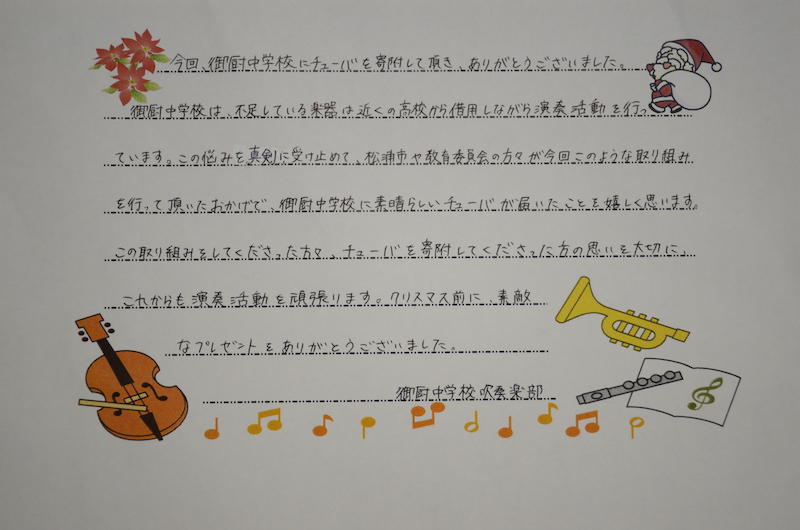 今回、御厨中学校にチューバを寄附して頂き、ありがとうございました。
御厨中学校は、不足している楽器は近くの高校から借用しながら演奏活動を行っ
ています。この悩みを真剣に受け止めて、松浦市や教育委員会の方々が今回このような取り組み
を行って頂いたおかげで、御厨中学校に素晴らしいチューバが届いたことを嬉しく思います。
この取り組みをしてくださった方々、チューバを寄附してくださった方の思いを大切に、
これからも演奏活動を頑張ります。クリスマス前に、素敵
なプレゼントをありがとうございました。
御厨中学校吹奏楽部